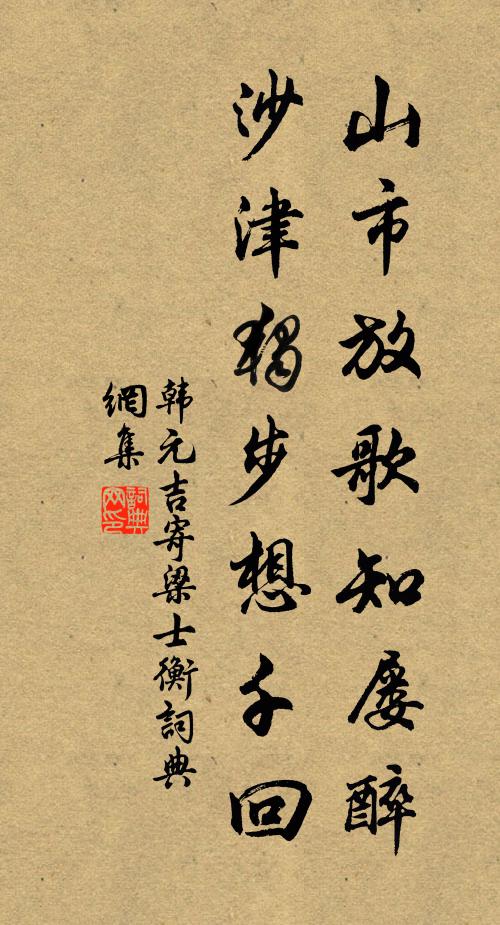 山市放歌知屡醉
沙津獨步想千回
韩元吉寄梁士衡詞典
網集
詞典
网印